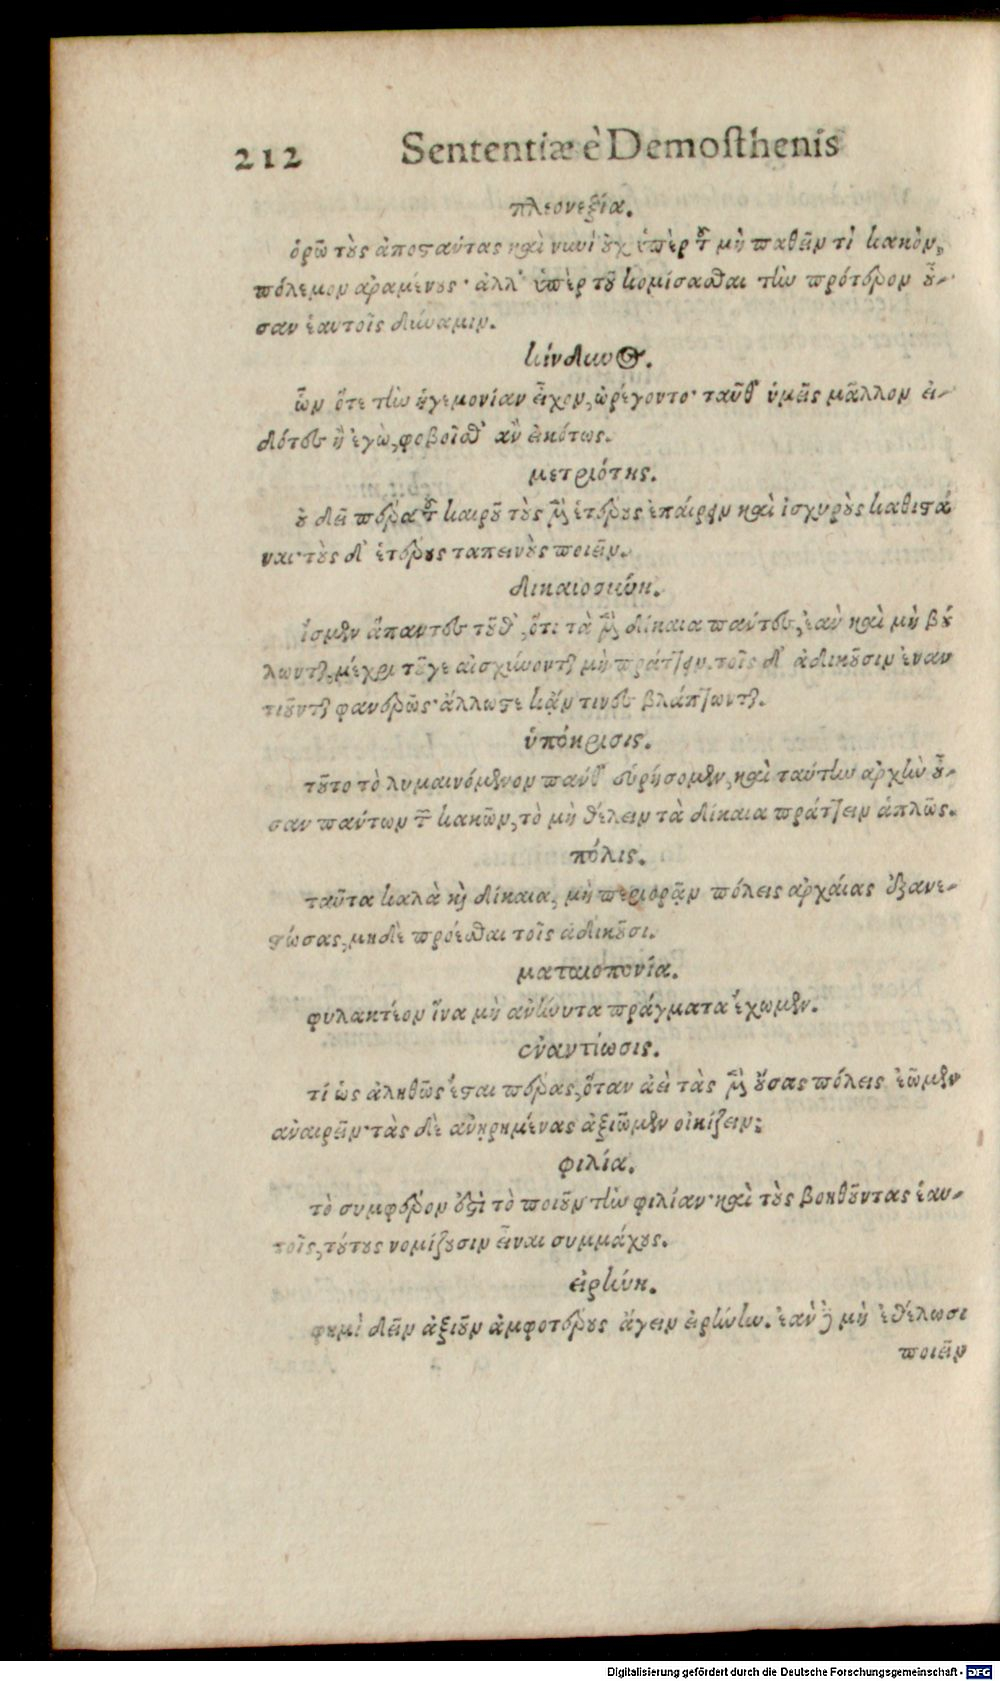 212 Sententiæ è Demosthenis
πλεονεξία.
ὁρῶ τοὺς ἀποστάντας καὶ νυνὶ οὐχ ὑπὲρ τοῦ μὴ παθεῖν τὶ κακὸν,
πόλεμον ἀραμένους· ἀλλ' ὑπὲρ τοῦ κομίσασθαι τὴν πρότερον οὖ-
σαν ἑαυτοῖς δύναμιν.
κίνδυνος.
ὧν ὅτε τὴν ἡγεμονίαν εἶχον, ὠρέγοντο· ταῦθ' ὑμεῖς μᾶλλον εἰ-
δότες ἢ ἐγὼ, φοβοῖσθ' ἂν εἰκότως.
μετριότης.
οὐ δεῖ πέρα τοῦ καιροῦ τοὺς μὲν ἑτέρους ἐπαίρειν καὶ ἰσχυροὺς καθιστά
ναι· τοὺς δ' ἑτέρους ταπεινοὺς ποιεῖν.
δικαιοσύνη.
ἴσμεν ἅπαντες τοῦθ', ὅτι τὰ μὲν δίκαια πάντες, ἐὰν καὶ μὴ βού
λωνται, μέχρι τοῦγε αἰσχύνονται μὴ πράττειν. τοῖς δ' ἀδικοῦσιν ἐναν
τιοῦνται φανερῶς· ἄλλωστε κᾄν τινες βλάπτωνται.
ὑπόκρισις.
τοῦτο τὸ λυμαινόμενον πάνθ' εὑρήσομεν, καὶ ταύτην ἀρχὴν οὖ-
σαν πάντων τῶν κακῶν, τὸ μὴ θέλειν τὰ δίκαια πράττειν ἁπλῶς.
πόλις.
ταῦτα καλὰ καὶ δίκαια, μὴ περιορᾷν πόλεις ἀρχαίας ἐξανε-
στώσας, μηδὲ πρόεσθαι τοῖς ἀδικοῦσι.
ματαιοπονία.
φυλακτέον ἵνα μὴ ἀνήνυτα πράγματα ἔχωμεν.
ἐναντίωσις.
τί ὡς ἀληθῶς ἔσται πέρας, ὅταν ἀεὶ τὰς μὲν οὔσας πόλεις ἐῶμεν
ἀναιρεῖν· τὰς δὲ ἀνῃρημένας ἀξιῶμεν οἰκίζειν;
φιλία.
τὸ συμφέρον ἐστὶ τὸ ποιοῦν τὴν φιλίαν· καὶ τοὺς βοηθοῦντας ἑαυ-
τοῖς, τούτους νομίζουσιν εἶναι συμμάχους.
εἰρήνη.
φημὶ δεῖν ἀξιοῦν ἀμφοτέρους ἄγειν εἰρήνην. ἐὰν δὲ μὴ ἐθέλωσι
ποιεῖν
Digitalisierung gefördert durch die Deutsche Forschungsgemeinschaft - DFG